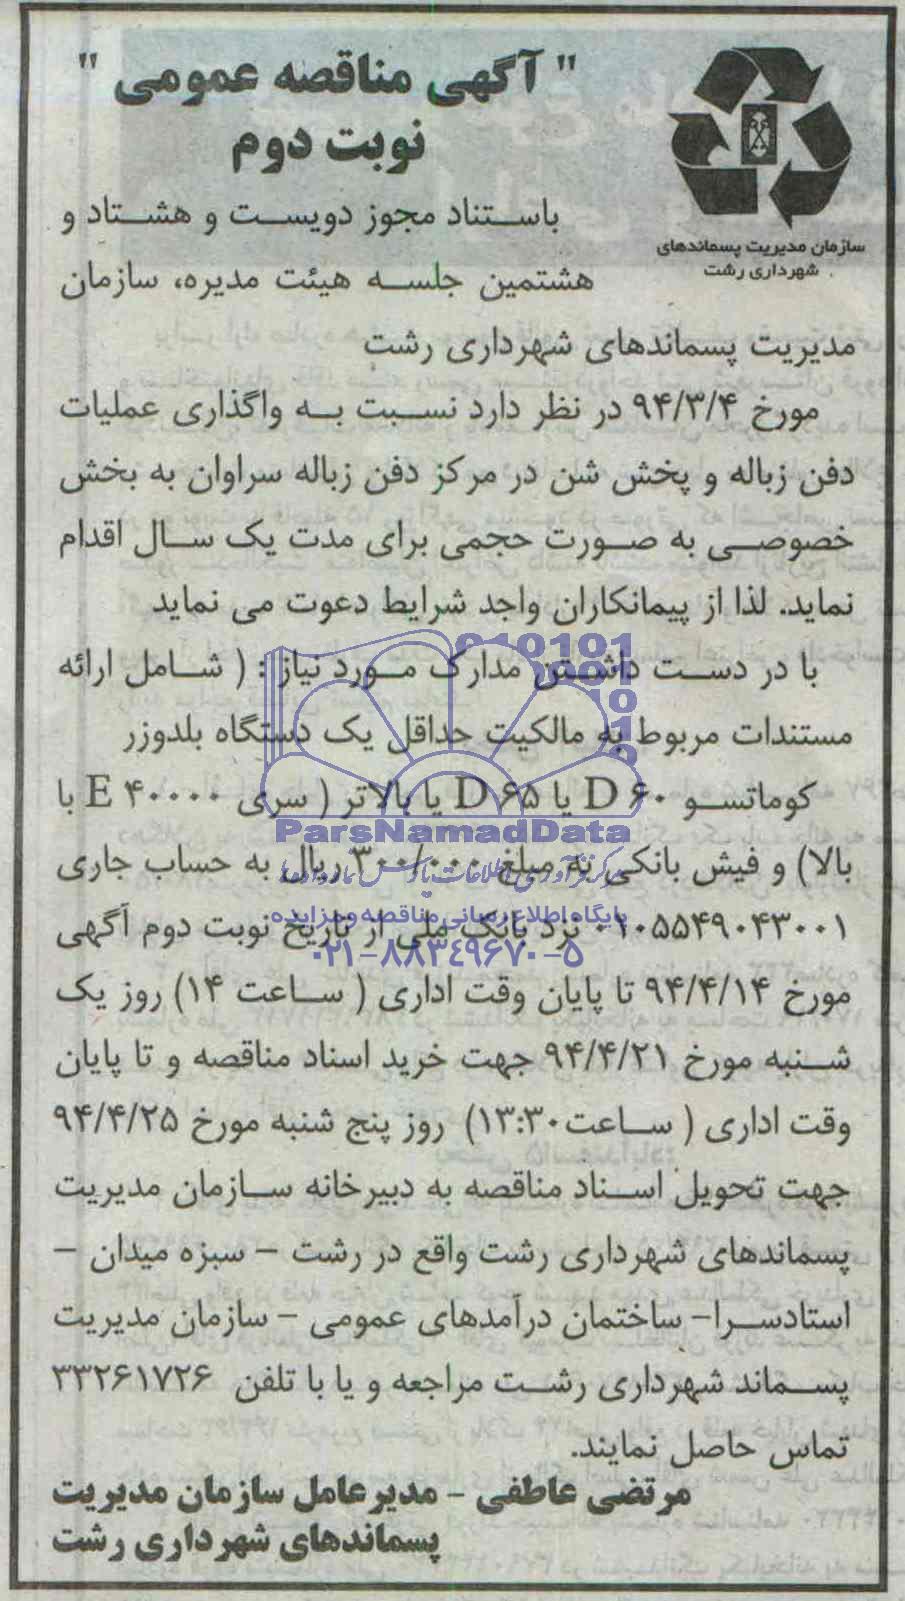 " آگهی مناقصه عمومی "
نوبت دوم
سازمان مدیریت پسماندهای
شهرداری رشت
باستناد مجوز دویست و هشتاد و
هشتمین جلسه هیئت مدیره، سازمان
مدیریت پسماندهای شهرداری رشت
مورخ ۹۴/۳/۴ در نظر دارد نسبت به واگذاری عملیات
دفن زباله و پخش شن در مرکز دفن زباله سراوان به بخش
خصوصی به صورت حجمی برای مدت یک سال اقدام
نماید. لذا از پیمانکاران واجد شرایط دعوت می نماید
با در دست داشتن مدارک مورد نیاز : ( شامل ارائه
مستندات مربوط به مالکیت حداقل یک دستگاه بلدوزر
کوماتسو D ۶۰ یا D ۶۵ یا بالاتر ( سری E ۴۰۰۰۰ با
بالا) و فیش بانکی به مبلغ ۳۰۰/۰۰۰ ریال به حساب جاری
۰۱۰۵۵۴۹۰۴۳۰۰۱ نزد بانک ملی از تاریخ نوبت دوم آگهی
مورخ ۹۴/۴/۱۴ تا پایان وقت اداری ( ساعت ۱۴) روز یک
شنبه مورخ ۹۴/۴/۲۱ جهت خرید اسناد مناقصه و تا پایان
وقت اداری ( ساعت۱۳:۳۰) روز پنج شنبه مورخ ۹۴/۴/۲۵
جهت تحویل اسناد مناقصه به دبیرخانه سازمان مدیریت
پسماندهای شهرداری رشت واقع در رشت – سبزه میدان –
استادسرا- ساختمان درآمدهای عمومی – سازمان مدیریت
پسماند شهرداری رشت مراجعه و یا با تلفن ۳۳۲۶۱۷۲۶
تماس حاصل نمایند.
مرتضی عاطفی - مدیرعامل سازمان مدیریت
پسماندهای شهرداری رشت
ParsNamadData
مرکز فرآوری اطلاعات پارس نماد داده ها
پایگاه اطلاع رسانی مناقصه و مزایده
۰۲۱-۸۸۳۴۹۶۷۰-۵